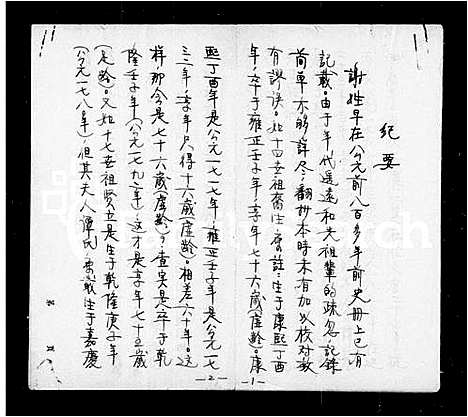 纪要
谢姓早在公元前八百多年前史册上已有
记载。由于年代遥远和先祖辈的疏忽，记录
简单不够详尽，翻抄本时未有加以校对致
有谬误。如十四世祖裔注，旧註：生于康熙丁酉
年，卒于雍正壬子年，享年七十六岁(虚龄)。康
-1-
熙丁酉年是公元一七一七年，雍正壬子年是公元一七
三二年，享年只得十六岁(虚龄)。相差六十年。这
样，那今是七十六岁(虚龄)，查实是卒于乾
隆壬子年(公元一七九二年)，这才是享年七十五岁
(足龄)。又如十七世祖贤立是生于乾隆庚子年
(公元一七八〇年)，但其夫人谭氏，票载生于嘉庆
-2-
FamilySearch